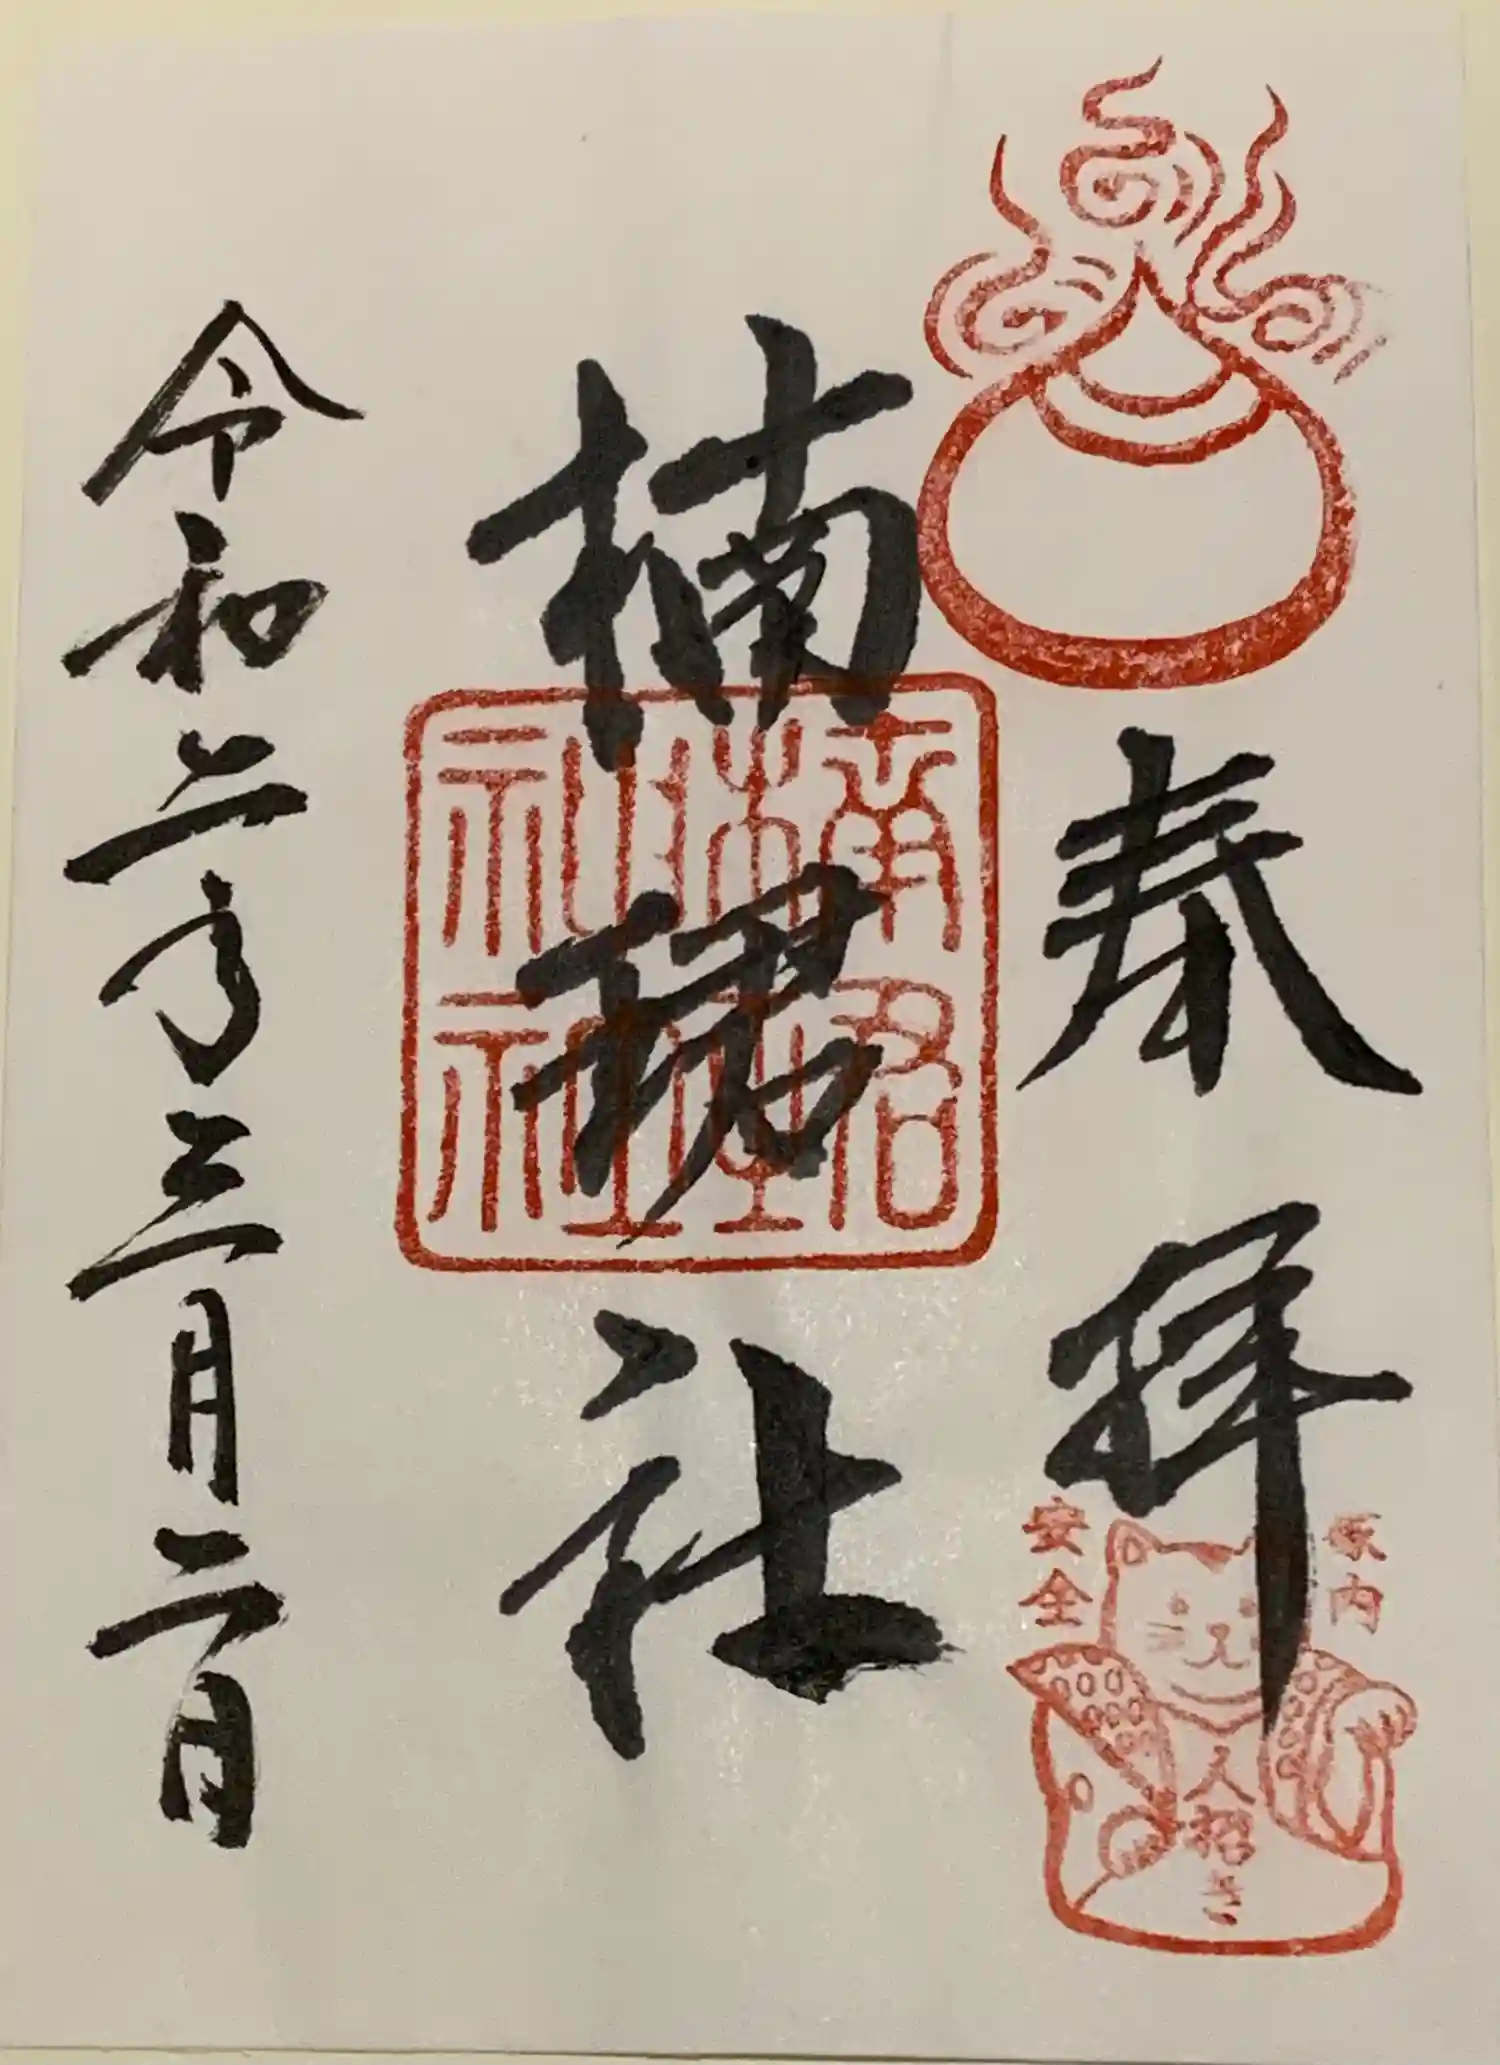 奉拝
楠珺社
令和二年三月二日
楠珺
神社
家内
安全
人招き